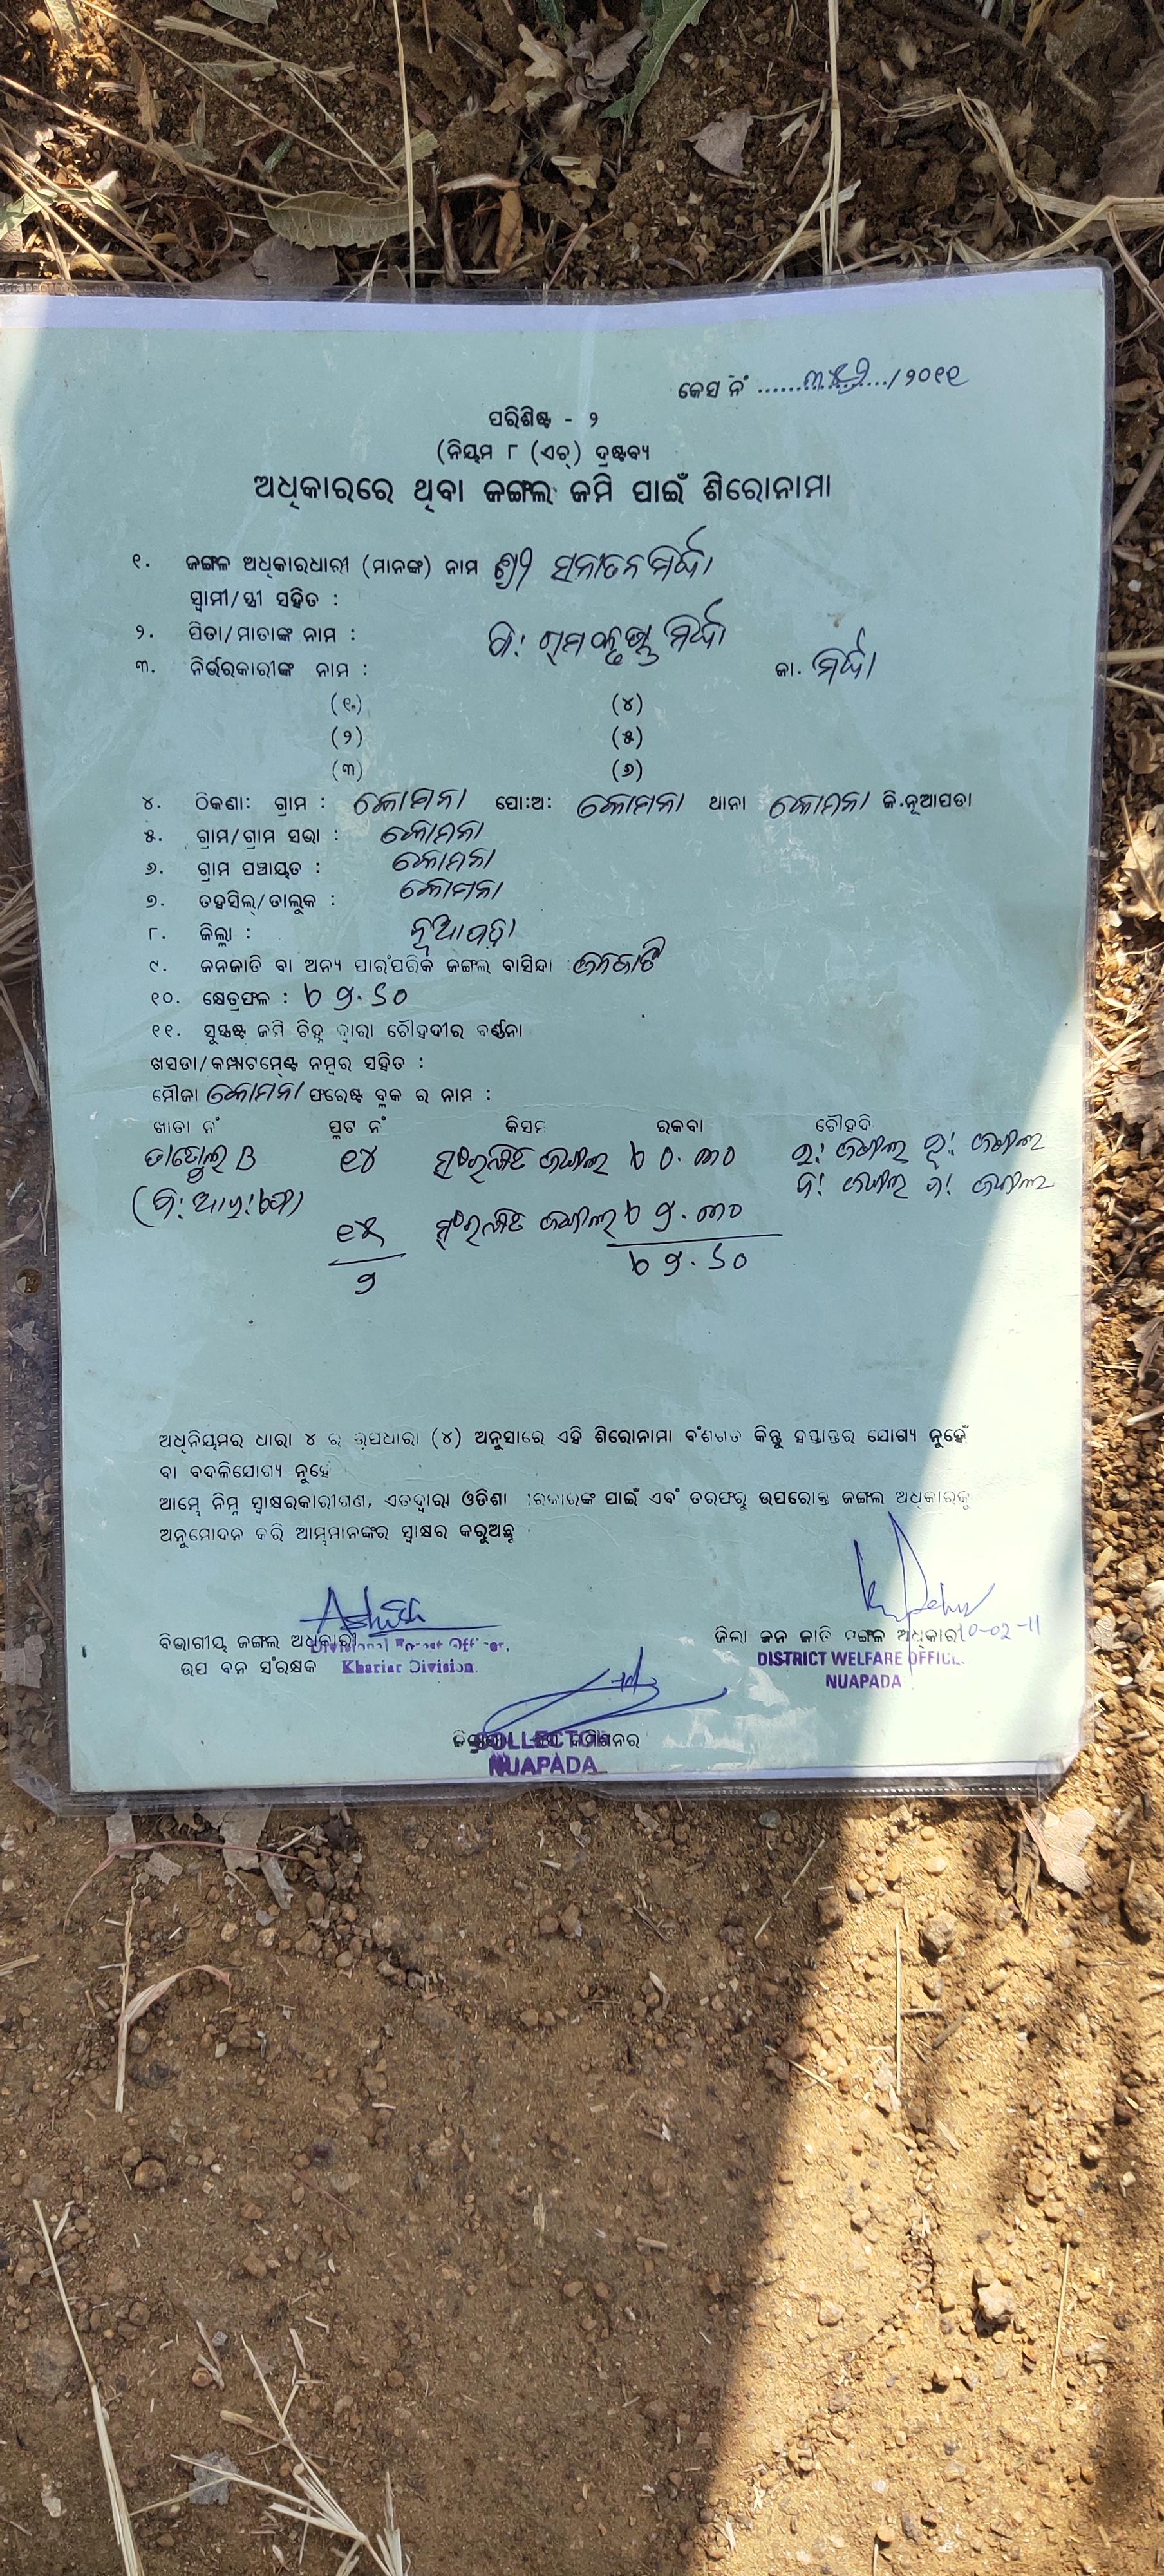 କେସ ନଂ ................/୨୦୧୧
ପରିଶିଷ୍ଟ - ୨
(ନିୟମ ୮ (ଏଚ୍) ଦ୍ରଷ୍ଟବ୍ୟ
ଅଧିକାରରେ ଥିବା ଜଙ୍ଗଲ ଜମି ପାଇଁ ଶିରୋନାମା
୧. ଜଙ୍ଗଳ ଅଧିକାରଧାରୀ (ମାନଙ୍କ) ନାମ ଶ୍ରୀ ସନାତନ ମିର୍ଦ୍ଧା
ସ୍ୱାମୀ/ସ୍ତ୍ରୀ ସହିତ :
୨. ପିତା/ମାତାଙ୍କ ନାମ : ମିର୍ଦ୍ଧା
୩. ନିର୍ଭରକାରୀଙ୍କ ନାମ : ଜା. ମିର୍ଦ୍ଧା
(୧) (୪)
(୨) (୫)
(୩) (୬)
୪. ଠିକଣା: ଗ୍ରାମ : କୋମନା ପୋ:ଅ: କୋମନା ଥାନା କୋମନା ଜି.ନୂଆପଡା
୫. ଗ୍ରାମ/ଗ୍ରାମ ସଭା : କୋମନା
୬. ଗ୍ରାମ ପଞ୍ଚାୟତ : କୋମନା
୭. ତହସିଲ୍/ତାଲୁକ : କୋମନା
୮. ଜିଲ୍ଲା : ନୂଆପଡ଼ା
୯. ଜନଜାତି ବା ଅନ୍ୟ ପାରଂପରିକ ଜଙ୍ଗଲ ବାସିନ୍ଦା : ଜନଜାତି
୧୦. କ୍ଷେତ୍ରଫଳ :
୧୧. ସୁସ୍ପଷ୍ଟ ଜମି ଚିହ୍ନ ଦ୍ୱାରା ଚୌହଦୀର ବର୍ଣ୍ଣନା
ଖସଡା/କମ୍ପାଟମେଣ୍ଟ ନମ୍ବର ସହିତ :
ମୌଜା କୋମନା ଫରେଷ୍ଟ ବ୍ଲକ ର ନାମ :
ଖାତା ନଂ ପ୍ଲଟ ନଂ କିସମ ରକବା ଚୌହଦି
B ୧୪ ସଂରକ୍ଷିତ ଜଙ୍ଗଲ
ସଂରକ୍ଷିତ ଜଙ୍ଗଲ
ଅଧିନିୟମର ଧାରା ୪ ର ଉପଧାରା (୪) ଅନୁସାରେ ଏହି ଶିରୋନାମା ବଂଶଗତ କିନ୍ତୁ ହସ୍ତାନ୍ତର ଯୋଗ୍ୟ ନୁହେଁ
ବା ବଦଳିଯୋଗ୍ୟ ନୁହେ
ଆମ୍ଭେ ନିମ୍ନ ସ୍ୱାକ୍ଷରକାରୀଗଣ, ଏତଦ୍ୱାରା ଓଡିଶା ସରକାରଙ୍କ ପାଇଁ ଏବଂ ତରଫରୁ ଉପରୋକ୍ତ ଜଙ୍ଗଲ ଅଧିକାରକୁ
ଅନୁମୋଦନ କରି ଆମ୍ଭମାନଙ୍କର ସ୍ୱାକ୍ଷର କରୁଅଛୁ
ବିଭାଗୀୟ ଜଙ୍ଗଲ ଅଧିକାରୀ Divisional Forest Officer,
ଉପ ବନ ସଂରକ୍ଷକ Khariar Division.
ଜିଲା ଜନ ଜାତି ମଙ୍ଗଳ ଅଧିକାରୀ 10-02-11
DISTRICT WELFARE OFFICE
NUAPADA
COLLECTOR
NUAPADA